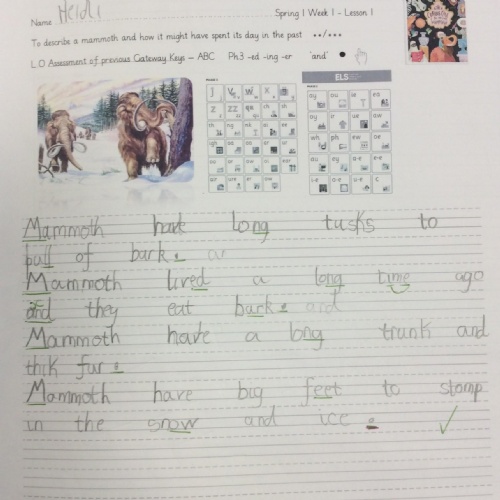 Name Heidi
Spring 1 Week 1 - Lesson 1
To describe a mammoth and how it might have spent its day in the past
L.O Assessment of previous Gateway Keys – ABC Ph3 -ed -ing -er 'and'
ELS
j v w x
y z zz qu ch
sh th ng nk ai ee
ay ou ie ea
oy ir ue aw
wh ph ew oe
au ey a-e e-e
i-e o-e u-e c
Mammoth have long tusks to
pull of bark. an
Mammoth lived a long time ago
and they eat bark. and
Mammoth have a long trunk and
thik fur.
Mammoth have big feet to stomp
in the snow and ice.